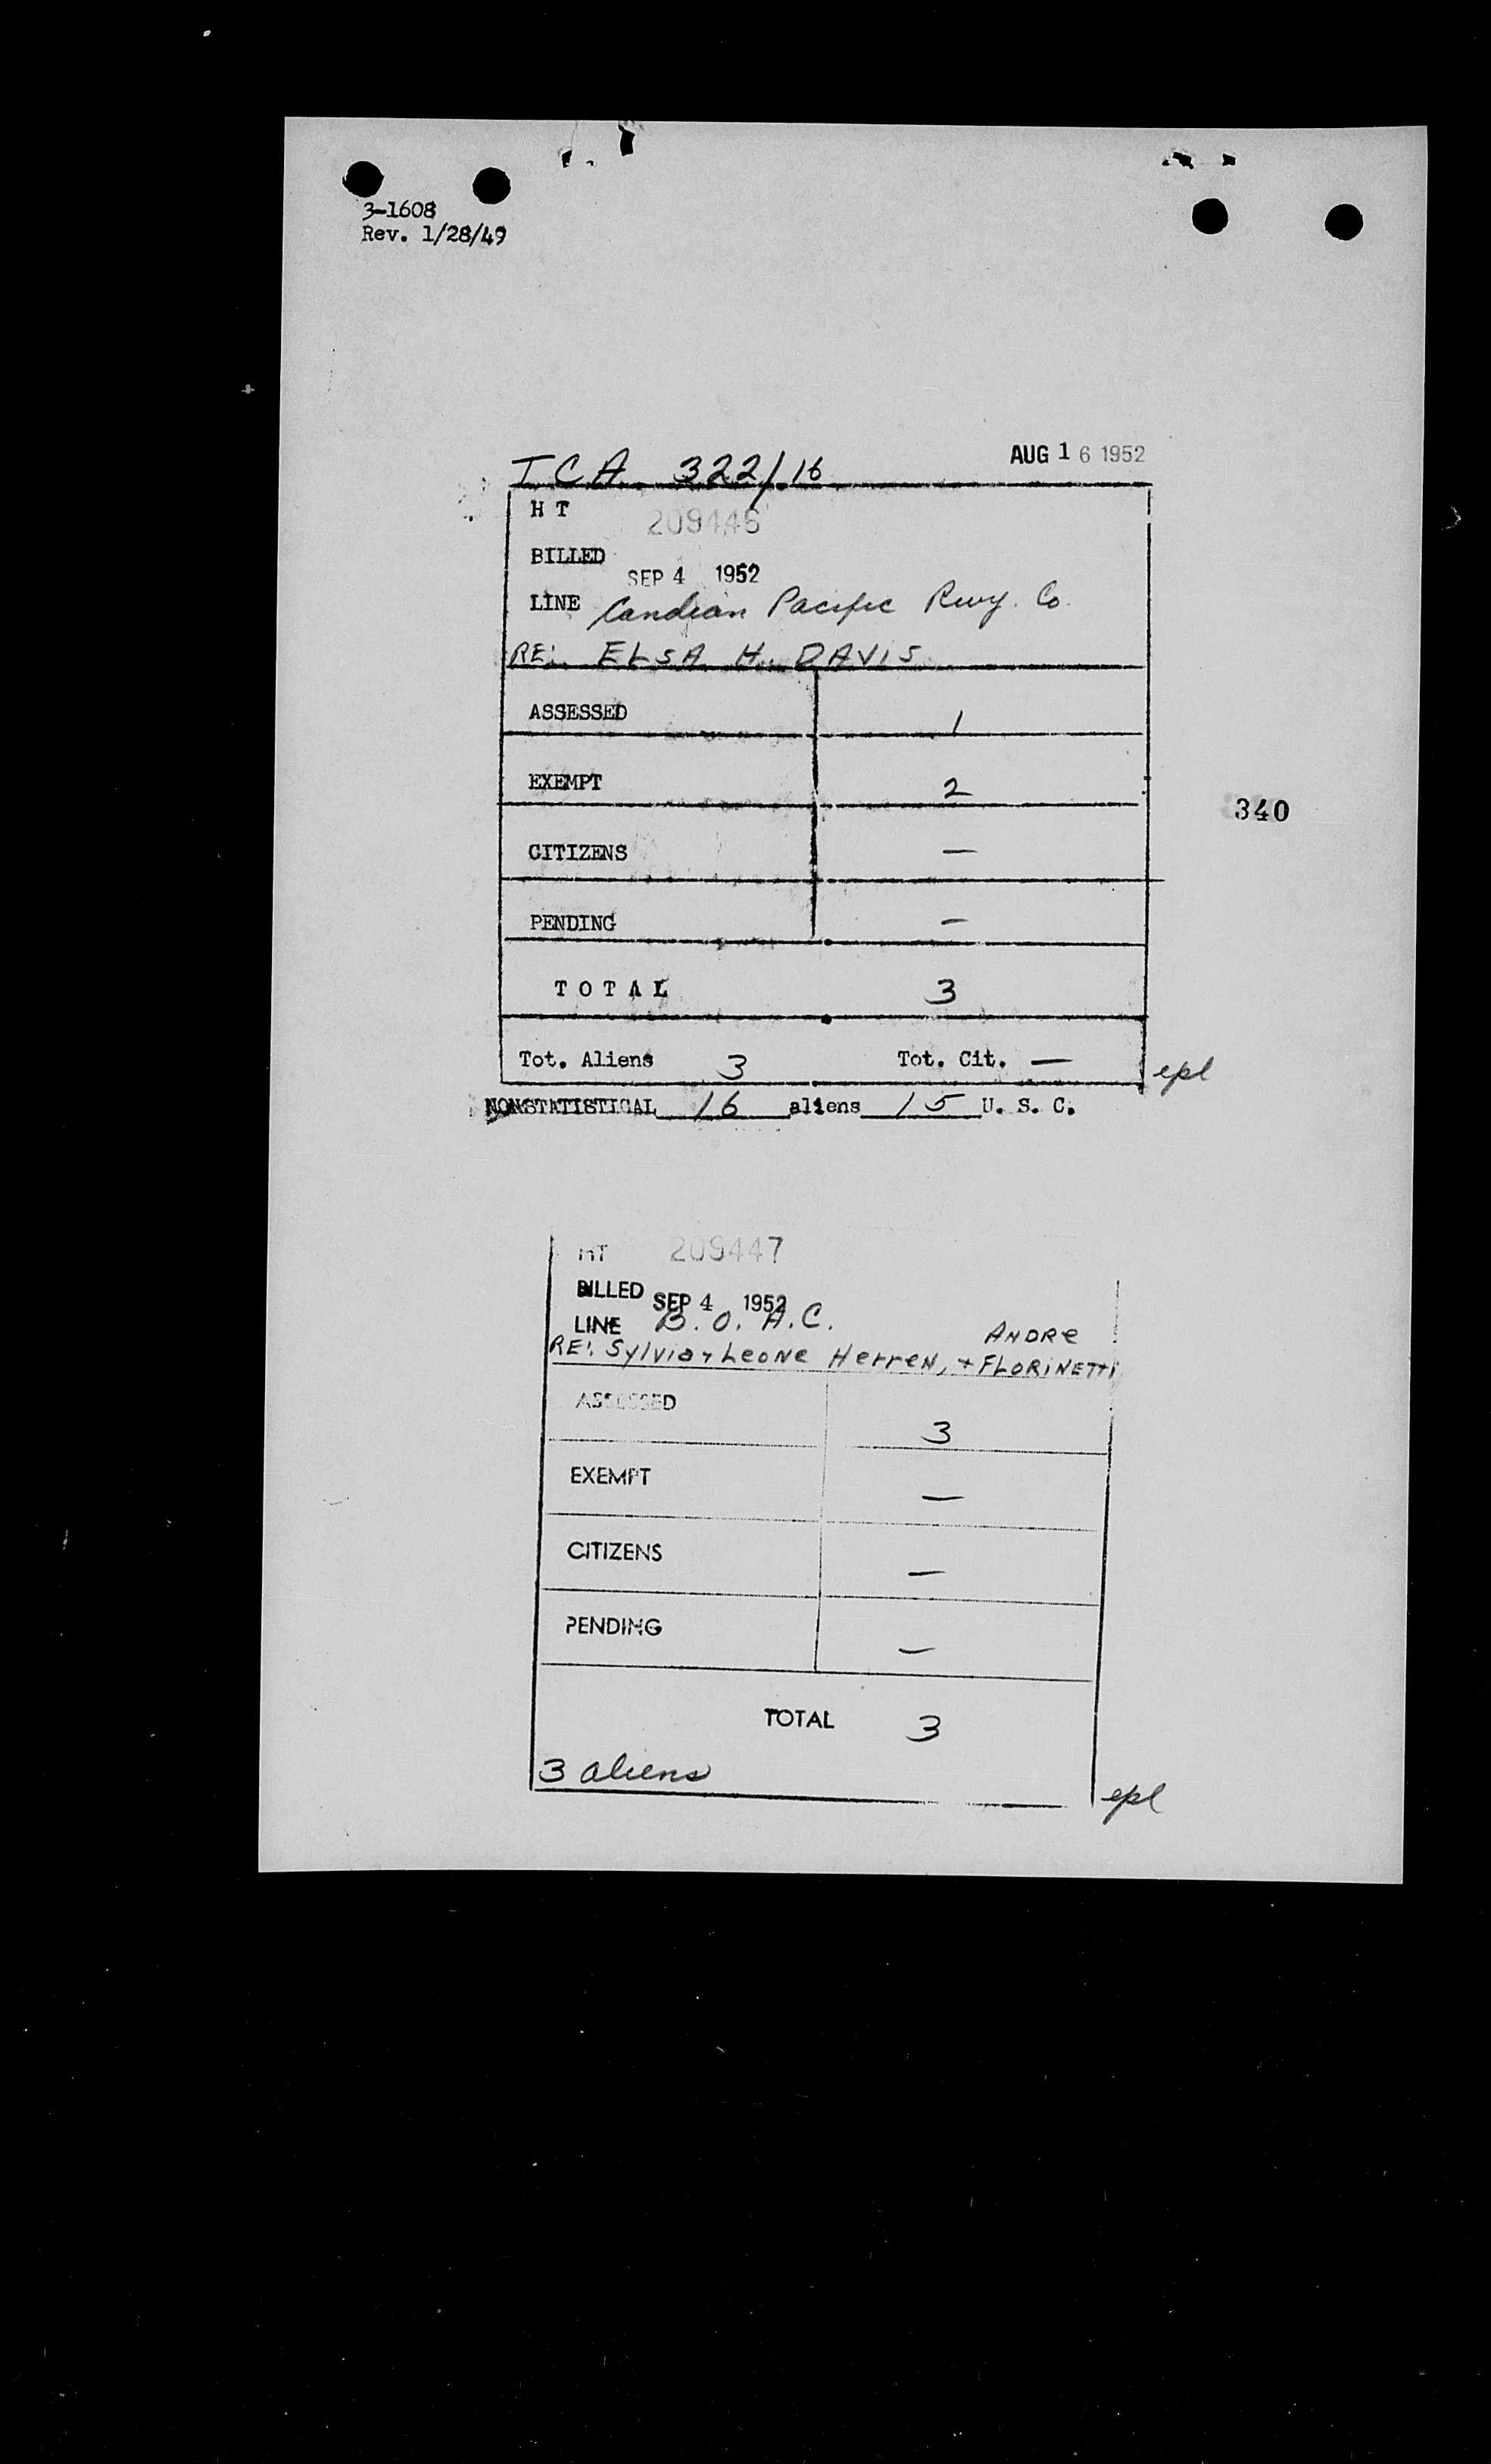 3-1608
Rev. 1/28/49
AUG 16 1952
TCA 322/16
HT 209446
BILLED SEP 4 1952
LINE Candian Pacific Rwy. Co.
RE: ELSA H. DAVIS
ASSESSED 1
EXEMPT 2
340
CITIZENS —
PENDING —
TOTAL 3
Tot. Aliens 3 Tot. Cit. —
epl
NONSTATISTICAL 16 aliens 15 U. S. C.
HT 209447
BILLED SEP 4 1952
LINE B.O.A.C.
ANDRe
RE: Sylvia + Leone Herren, + FLORINETTI
ASSESSED 3
EXEMPT —
CITIZENS —
PENDING —
TOTAL 3
3 aliens
epl